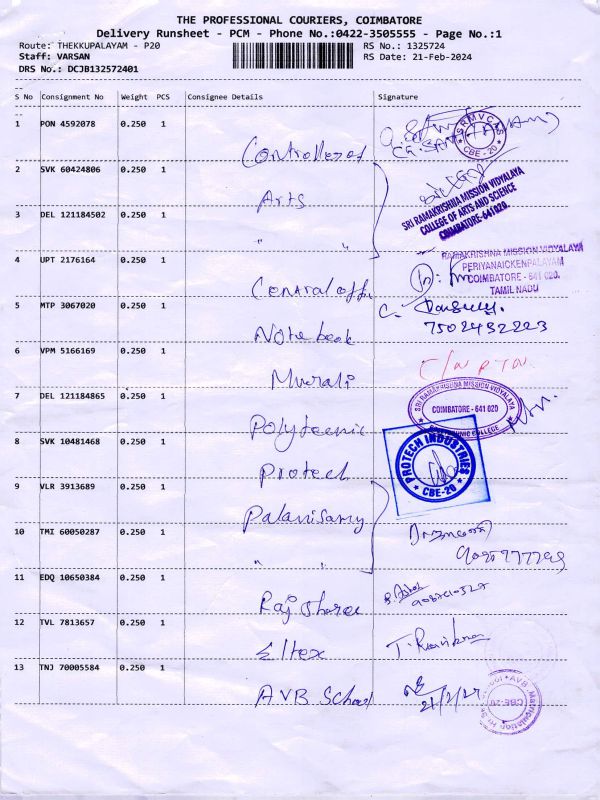 THE PROFESSIONAL COURIERS, COIMBATORE
Delivery Runsheet - PCM - Phone No.:0422-3505555 - Page No.:1
Route: THEKKUPALAYAM - P20 RS No.: 1325724
Staff: VARSAN RS Date: 21-Feb-2024
DRS No.: DCJB132572401
S No Consignment No Weight PCS Consignee Details Signature
1 PON 4592078 0.250 1 SRMVCAS CBE-20
2 SVK 60424806 0.250 1 SRI RAMAKRISHNA MISSION VIDYALAYA
Arts COLLEGE OF ARTS AND SCIENCE
3 DEL 121184502 0.250 1 COIMBATORE-641020.
" "
4 UPT 2176164 0.250 1 RAMAKRISHNA MISSION VIDYALAYA
PERIYANAICKENPALAYAM
COIMBATORE - 641 020.
Central TAMIL NADU
5 MTP 3067020 0.250 1
Notebook
6 VPM 5166169 0.250 1
Murali
7 DEL 121184865 0.250 1 SRI RAMAKRISHNA MISSION VIDYALAYA
COIMBATORE - 641 020
Polyteenic COLLEGE
8 SVK 10481468 0.250 1 PROTECH INDUSTRIES
Protech CBE-20
9 VLR 3913689 0.250 1
Palanisamy
10 TMI 60050287 0.250 1
" "
11 EDQ 10650384 0.250 1
Raj Sharee
12 TVL 7813657 0.250 1
Eltex
13 TNJ 70005584 0.250 1
AVB School 21/2/24